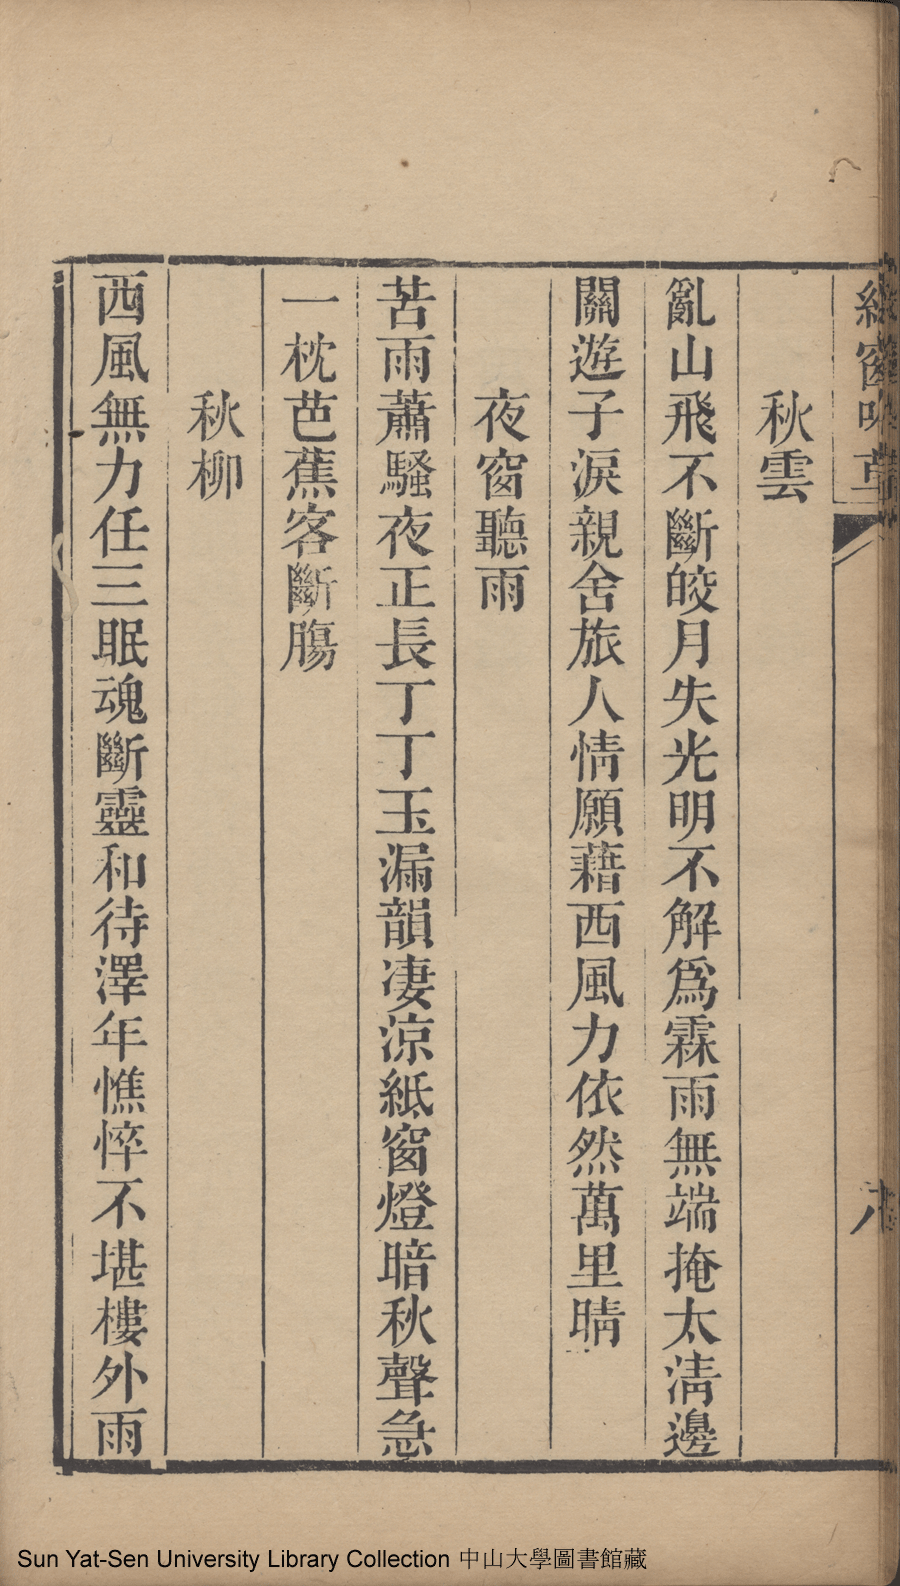 秋雲
亂山飛不斷皎月失光明不解爲霖雨無端掩太清邊
關遊子淚親舍旅人情願藉西風力依然萬里晴
夜窗聽雨
苦雨蕭騷夜正長丁丁玉漏韻凄涼紙窗燈暗秋聲急
一枕芭蕉客斷膓
秋柳
西風無力任三眠魂斷靈和待澤年憔悴不堪樓外雨
Sun Yat-Sen University Library Collection 中山大學圖書館藏